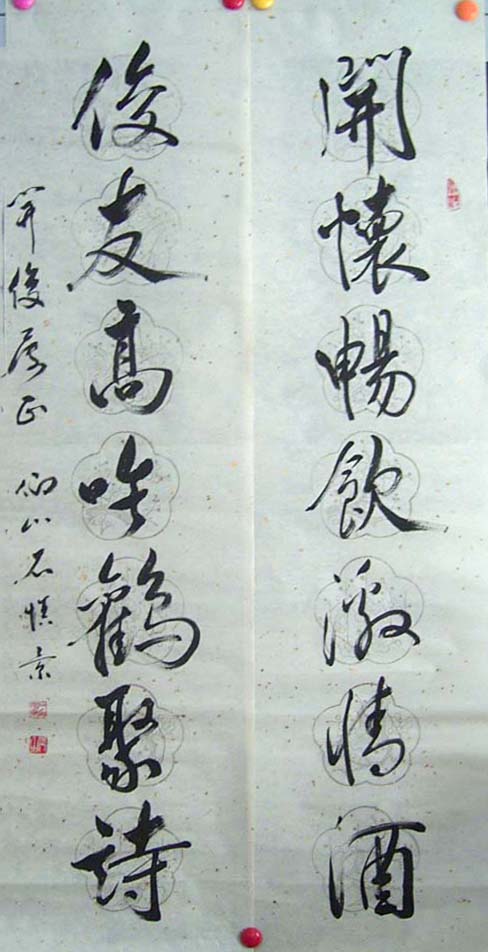 開懷暢飲激情酒
俊友高吟鶴聚詩
開俊屬正 仰山石慎京